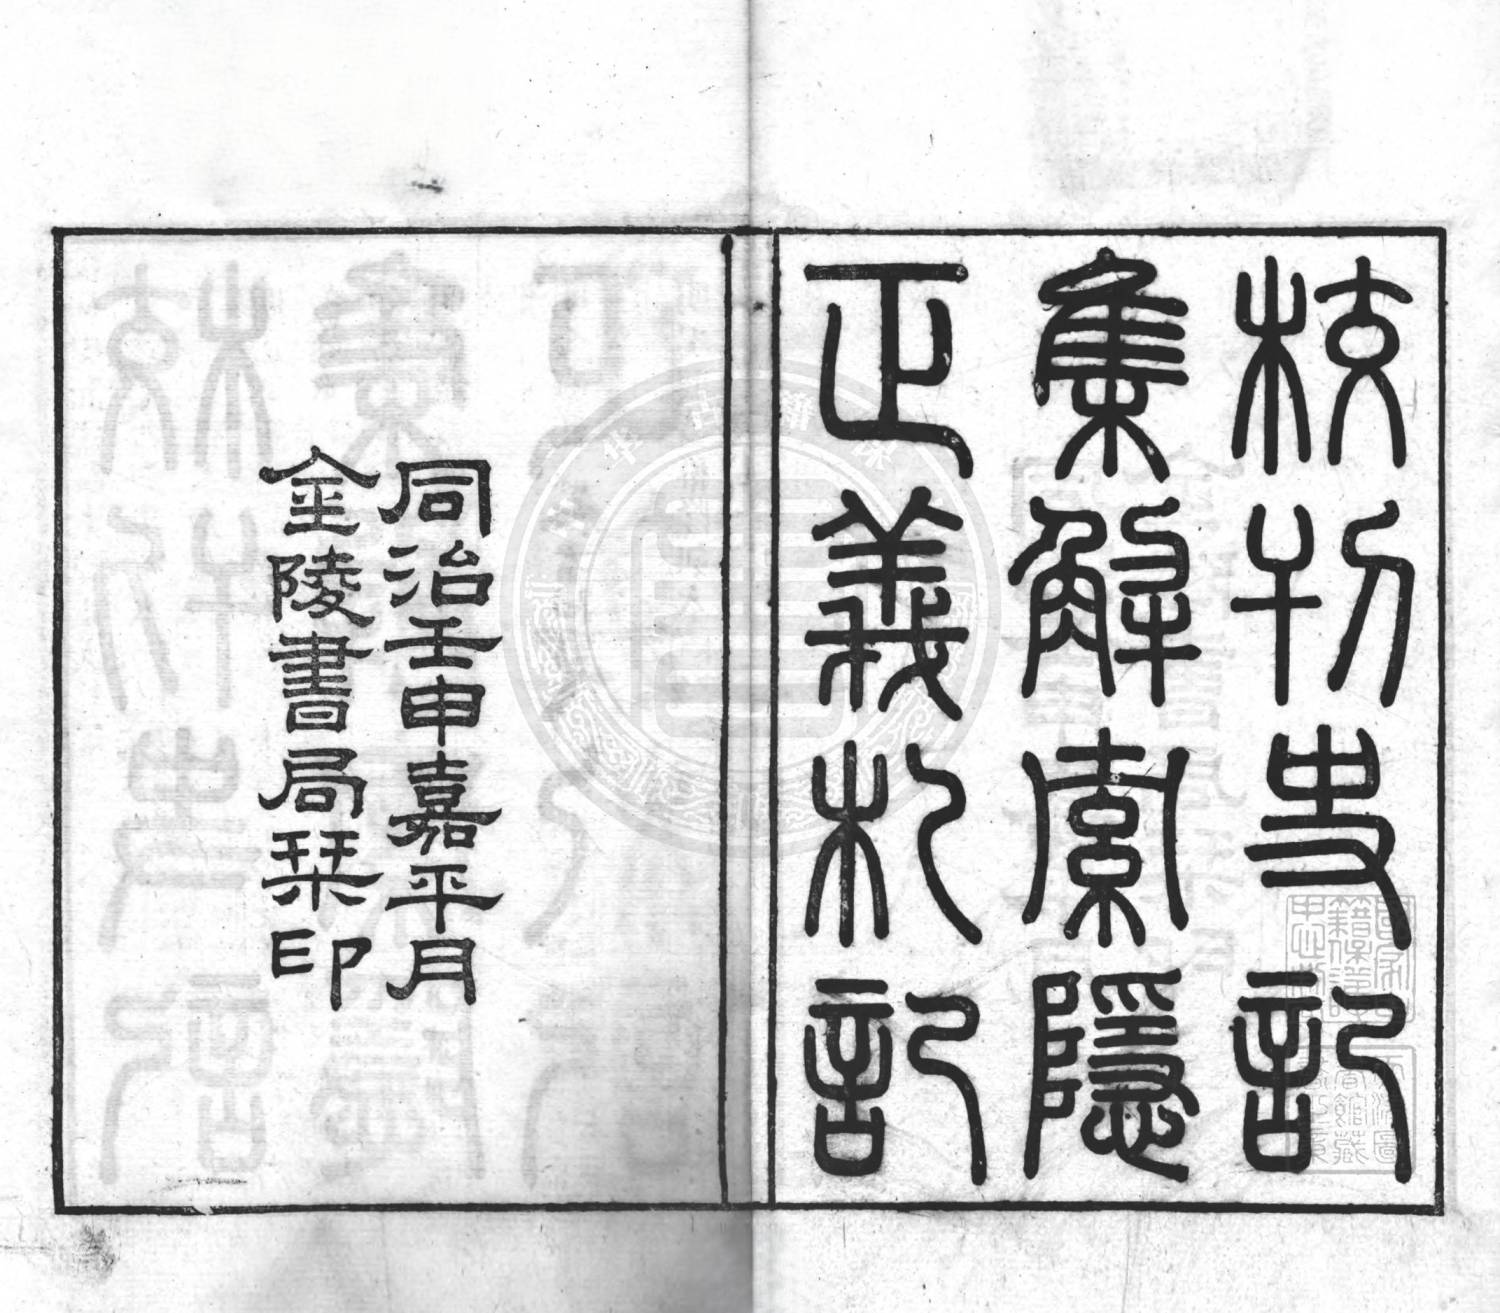 校刊史記
集解索隱
正義札記
同治壬申嘉平月
金陵書局栞印